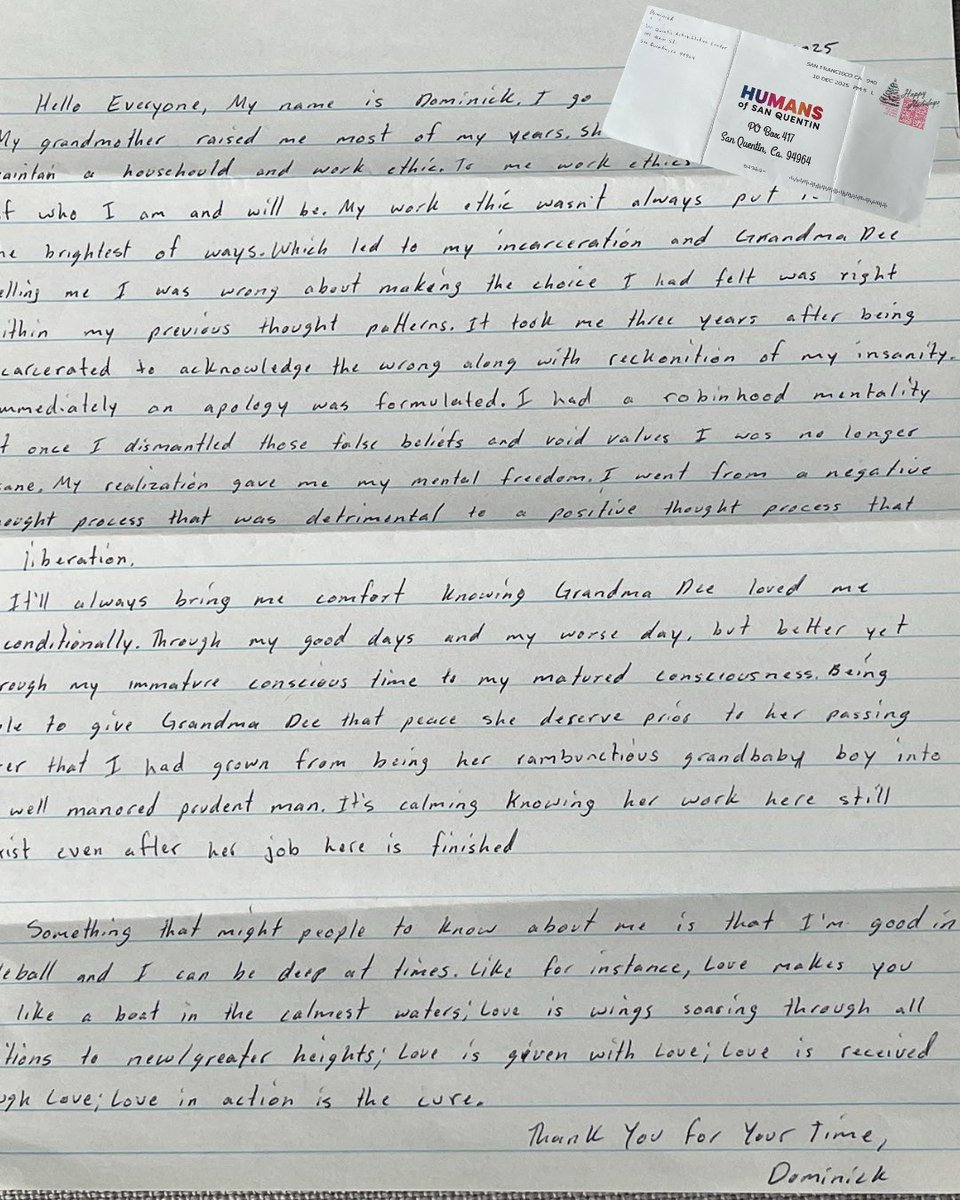 25
Dominick
San Quentin Rehabilitation Center
San Quentin, CA 94964
SAN FRANCISCO CA 940
10 DEC 2025 PM 5 L
Happy Holidays
HUMANS
of SAN QUENTIN
PO Box 417
San Quentin, Ca. 94964
Hello Everyone, My name is Dominick. I go
My grandmother raised me most of my years. Sh
aintan a househould and work ethic. To me work ethics
f who I am and will be. My work ethic wasn't always put i
he brightest of ways. Which led to my incarceration and Grandma Dee
elling me I was wrong about making the choice I had felt was right
ithin my previous thought patterns. It took me three years after being
carcerated to acknowledge the wrong along with reckonition of my insanity.
mmediately an apology was formulated. I had a robinhood mentality
t once I dismantled those false beliefs and void values I was no longer
sane. My realization gave me my mental freedom. I went from a negative
hought process that was detrimental to a positive thought process that
liberation.
It'll always bring me comfort knowing Grandma Dee loved me
conditionally. Through my good days and my worse day, but better yet
rough my immature conscious time to my matured consciousness. Being
ble to give Grandma Dee that peace she deserve prior to her passing
er that I had grown from being her rambunctious grandbaby boy into
well manored prudent man. It's calming knowing her work here still
xist even after her job here is finished
Something that might people to know about me is that I'm good in
leball and I can be deep at times. Like for instance, Love makes you
like a boat in the calmest waters; Love is wings soaring through all
itions to new/greater heights; Love is given with Love; Love is received
ugh Love; Love in action is the cure.
Thank You For Your Time,
Dominick